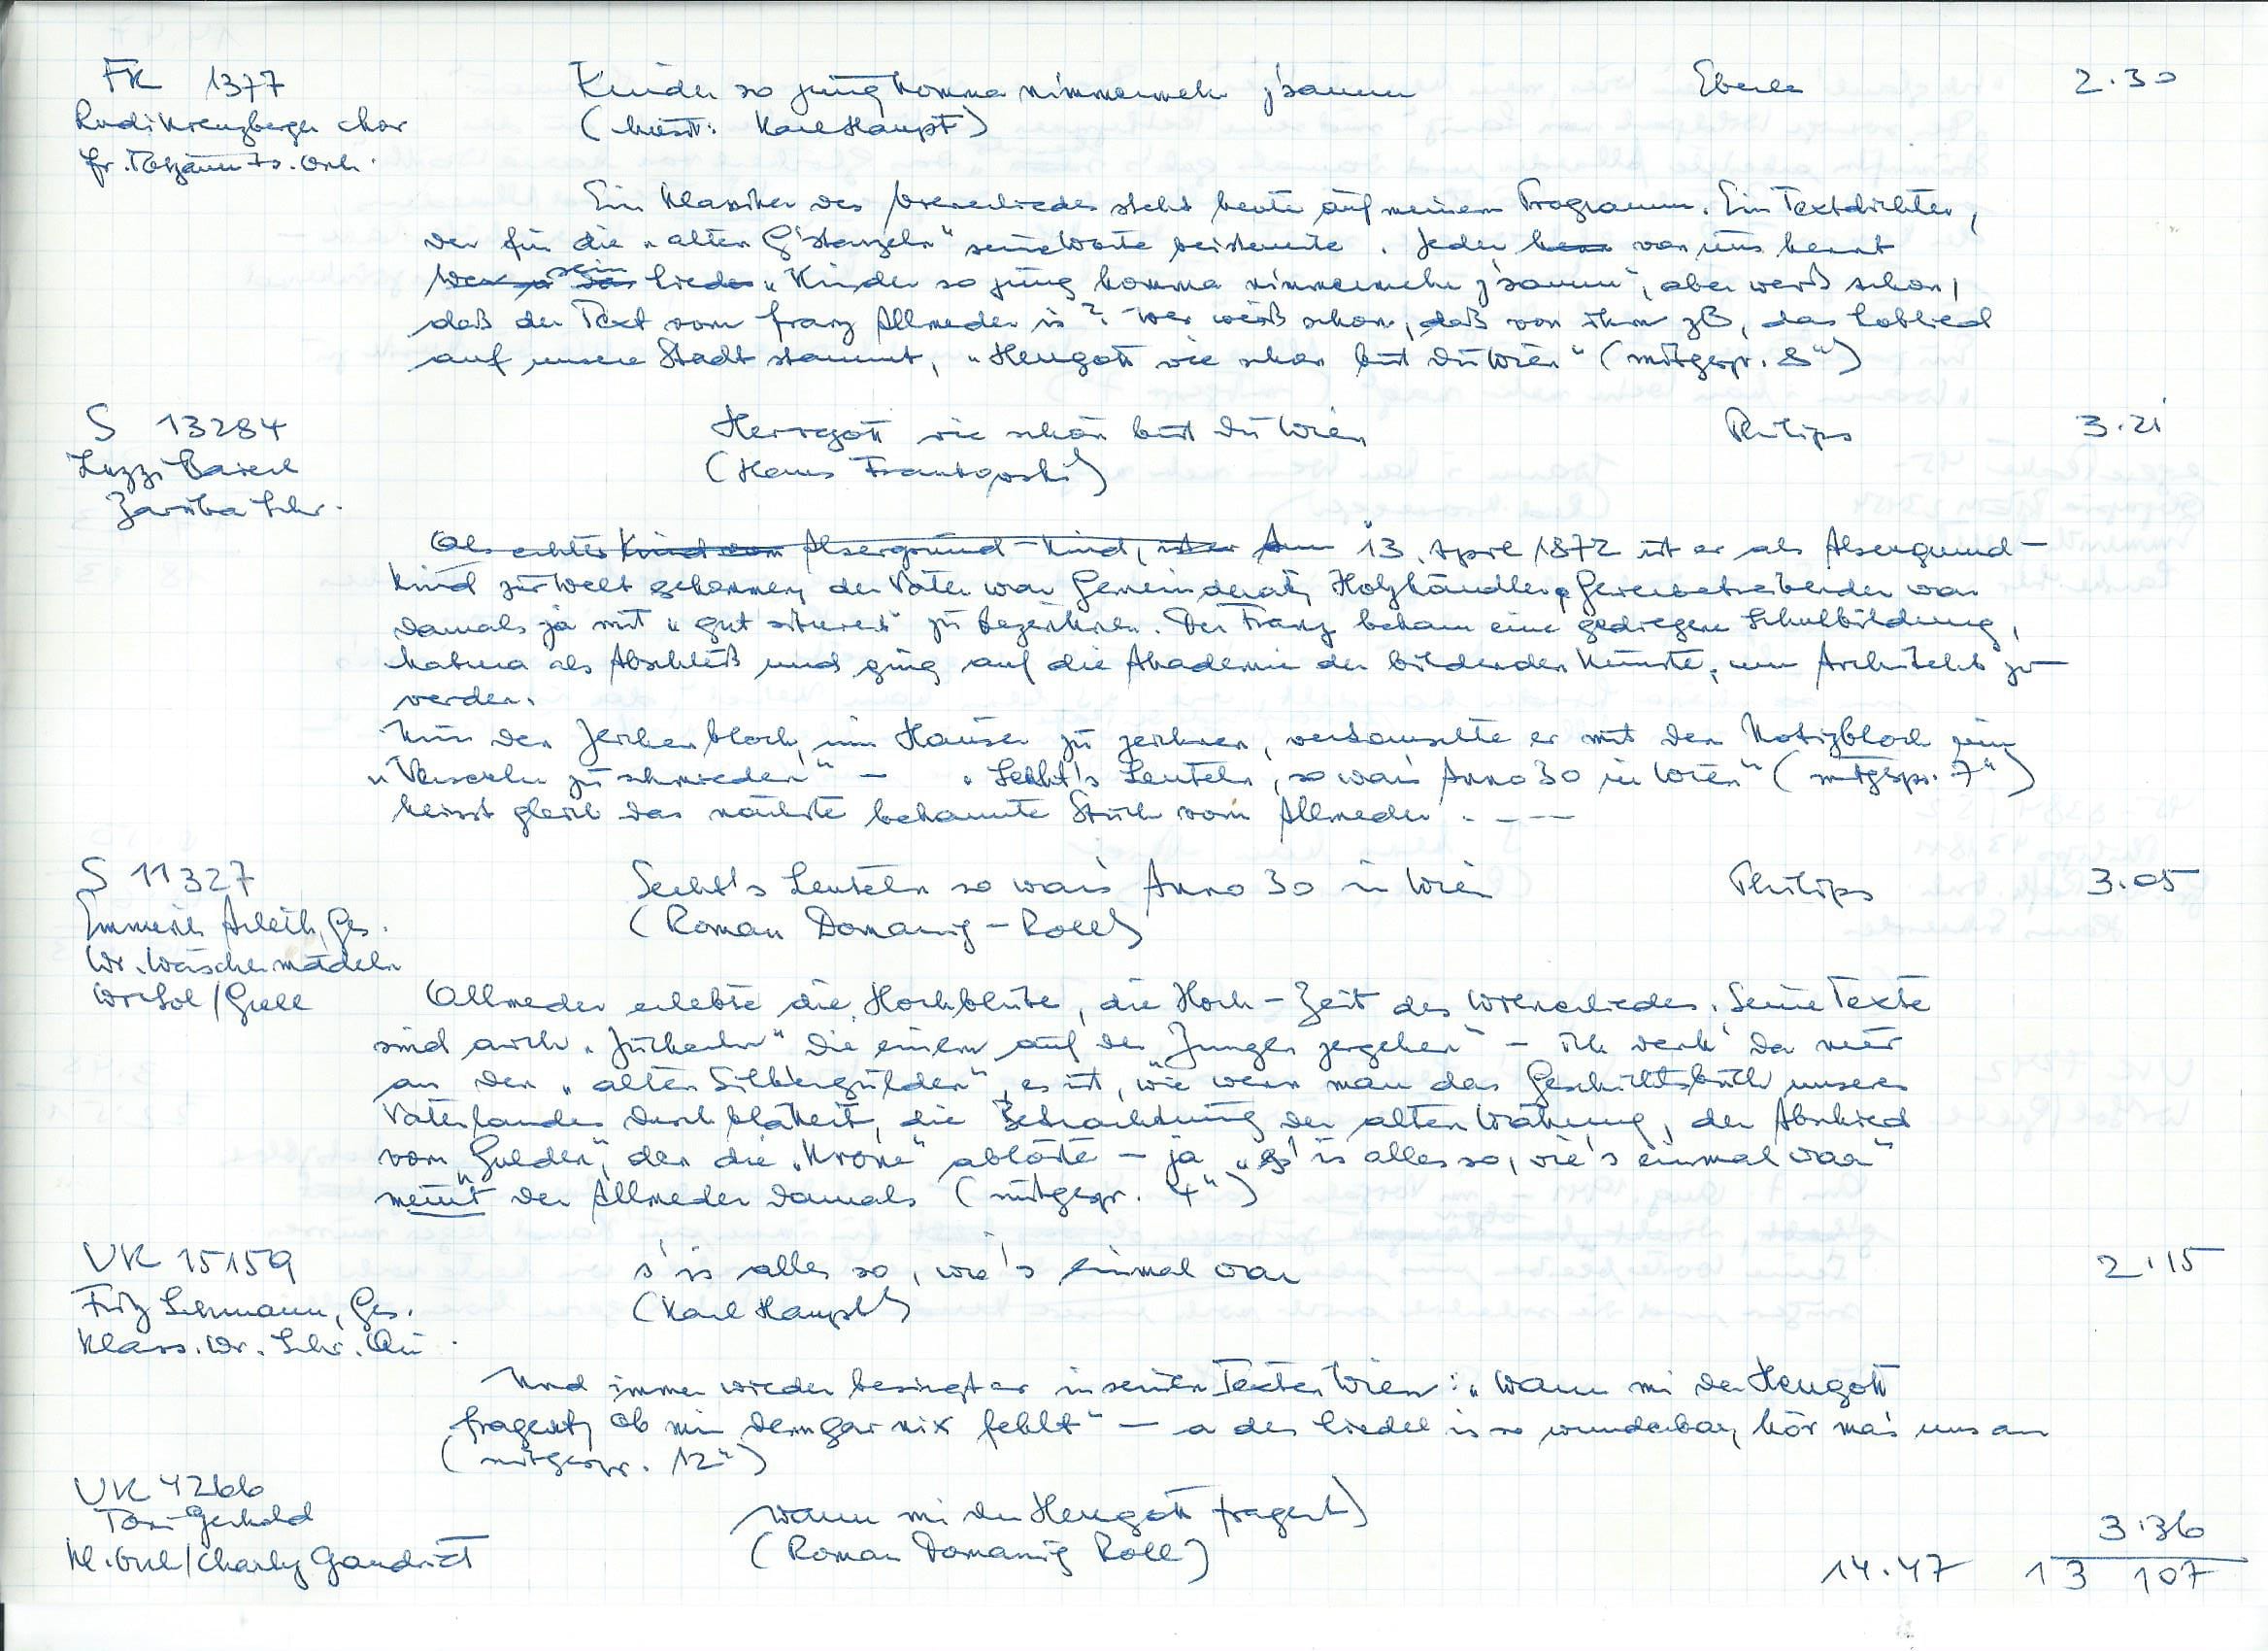 FK 1377 Kinder so jung komma nimmermehr z'samm Eberle 2.30
Rudi Kreuzberger Chor (Musik: Karl Haupt)
Ein Klassiker des Wienerliedes steht heute auf meinem Programm. Ein Textdichter,
der für die "alten G'stanzeln" seine Worte beisteuerte. Jeder von uns kennt
sein Lied "Kinder so jung komma nimmermehr z'samm", aber weiß schon,
daß der Text vom Franz Allmeder is? Wer weiß schon, daß von ihm zB, das Loblied
auf unsere Stadt stammt, "Herrgott wie schön bist du Wien" (mitgespr. 8")
S 13284 Herrgott wie schön bist du Wien Philips 3.21
Luzzi Baierl (Hans Frankowski)
Zaruba Schr.
Als echtes Kind vom Alsergrund-Kind, ist er Am 13. April 1872 ist er als Alsergrund-
kind zur Welt gekommen, der Vater war Gemeinderat, Holzhändler, Gewerbetreibender war
damals ja mit "gut situiert" zu bezeichnen. Der Franz bekam eine gediegene Schulbildung,
Matura als Abschluß und ging auf die Akademie der bildenden Künste, um Architekt zu
werden.
Nun den Zeichenblock, um Häuser zu zeichnen, vertauschte er mit dem Notizblock um
"Verserln zu schmieden" - "Secht's Leuteln, so war's Anno 30 in Wien" (mitgespr. 7")
heisst gleich das nächste bekannte Stück vom Allmeder . - - -
S 11327 Secht's Leuteln so war's Anno 30 in Wien Philips 3.05
Emmerich Arleth, Ges. (Roman Domanig-Roll)
Wr. Wäschermädeln
Allmeder erlebte die Hochblüte, die Hoch-Zeit des Wienerliedes. Seine Texte
sind auch "Zuckerln" die einem auf der "Zunge zergehen" - ich denk' da nur
an den "alten Silbergulden", es ist, wie wenn man das Geschichtsbuch unseres
Vaterlandes durchblättert, die Betrachtung der alten Währung, der Abschied
vom "Gulden", den die "Krone" ablöste - ja "s' is alles so, wie's einmal war"
meint der Allmeder damals (mitgespr. 4")
VK 15159 s' is alles so, wie's einmal war 2.15
Fritz Lehmann, Ges. (Karl Haupt)
Klass. Wr. Schr. Qu.
Und immer wieder besingt er in seinen Texten Wien: "Wann mi der Herrgott
fragert, ob mir denn gar nix fehlt" - a des Liedel is so wunderbar, hör ma's uns an
(mitgespr. 12")
VK 4266 Wann mi der Herrgott fragert 3.36
Toni Gerhold (Roman Domanig Roll)
Kl. Orch/Charly Gaudriot 14.47 13 107